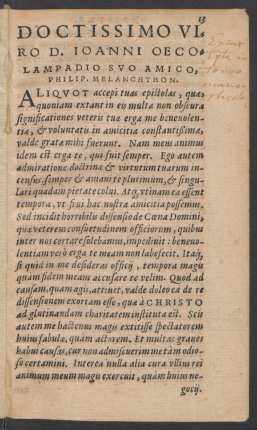 DOCTISSIMO VI-
RO D. IOANNI OECO-
LAMPADIO SVO AMICO,
PHILIP. MELANCHTHON.
ALIQVOT accepi tuas epistolas, quæ,
quoniam extant in eis multa non obscura
significationes veteris tuæ erga me beneuolen-
tiæ, & voluntatis in amicitia constantissimæ,
valde gratæ mihi fuerunt. Nam meus animus
idem est erga te, qui fuit semper. Ego autem
admiratione doctrinæ & virtutum tuarum in-
census, semper & amaui te plurimum, & singu-
lari quadam pietate colui. Atq; vtinam ea essent
tempora, vt frui hac nostra amicitia possemus.
Sed incidit horribilis dissensio de Cœna Domini,
quæ veterem consuetudinem officiorum, quibus
inter nos certare solebamus, impediuit: beneuo-
lentiam verò erga te meam non labefecit. Itaq;
si quid in me desideras officij, tempora magis
quàm fidem meam accusare te velim. Quod ad
causam, quam agis, attinet, valde doleo ea de re
dissensionem exortam esse, quæ à CHRISTO
ad glutinandam charitatem instituta est. Scis
autem me hactenus magis extitisse spectatorem
huius fabulæ, quàm actorem. Et multas graues
habui causas, cur non admiscuerim me tam odio-
so certamini. Interea nulla alia cura vllius rei
animum meum magis exercuit, quàm huius ne-
gocij.